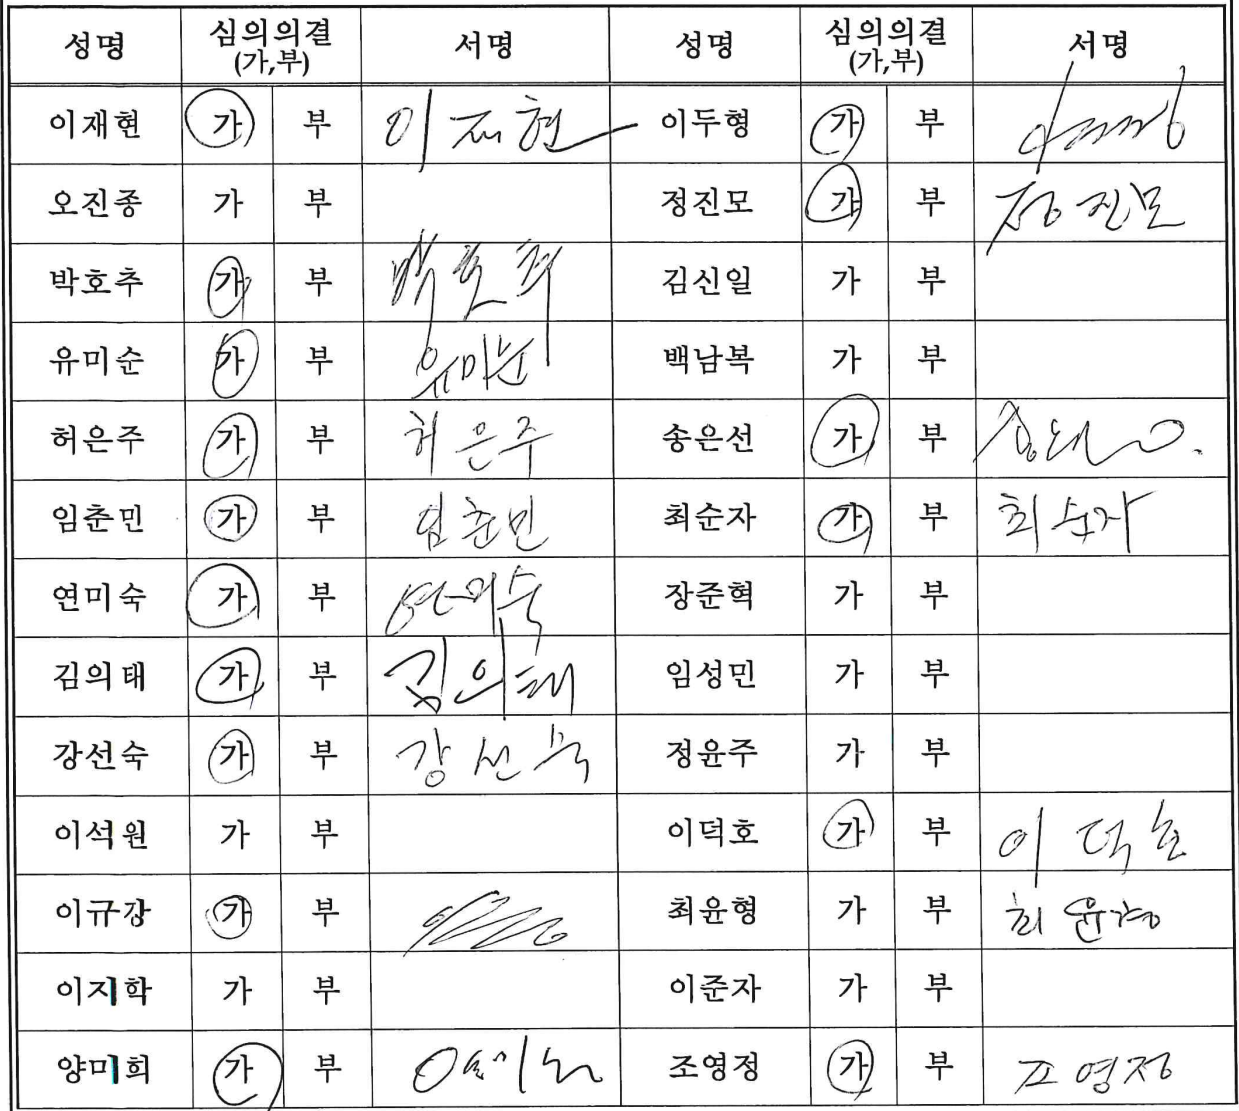 성명 심의의결 서명 성명 심의의결 서명
(가,부) (가,부)
이재현 가 부 이재현 이두형 가 부
오진종 가 부 정진모 가 부 정진모
박호추 가 부 박호추 김신일 가 부
유미순 가 부 유미순 백남복 가 부
허은주 가 부 허은주 송은선 가 부
임춘민 가 부 임춘민 최순자 가 부 최순자
연미숙 가 부 연미숙 장준혁 가 부
김의태 가 부 김의태 임성민 가 부
강선숙 가 부 강선숙 정윤주 가 부
이석원 가 부 이덕호 가 부 이덕호
이규강 가 부 최윤형 가 부 최윤형
이지학 가 부 이준자 가 부
양미희 가 부 조영정 가 부 조영정